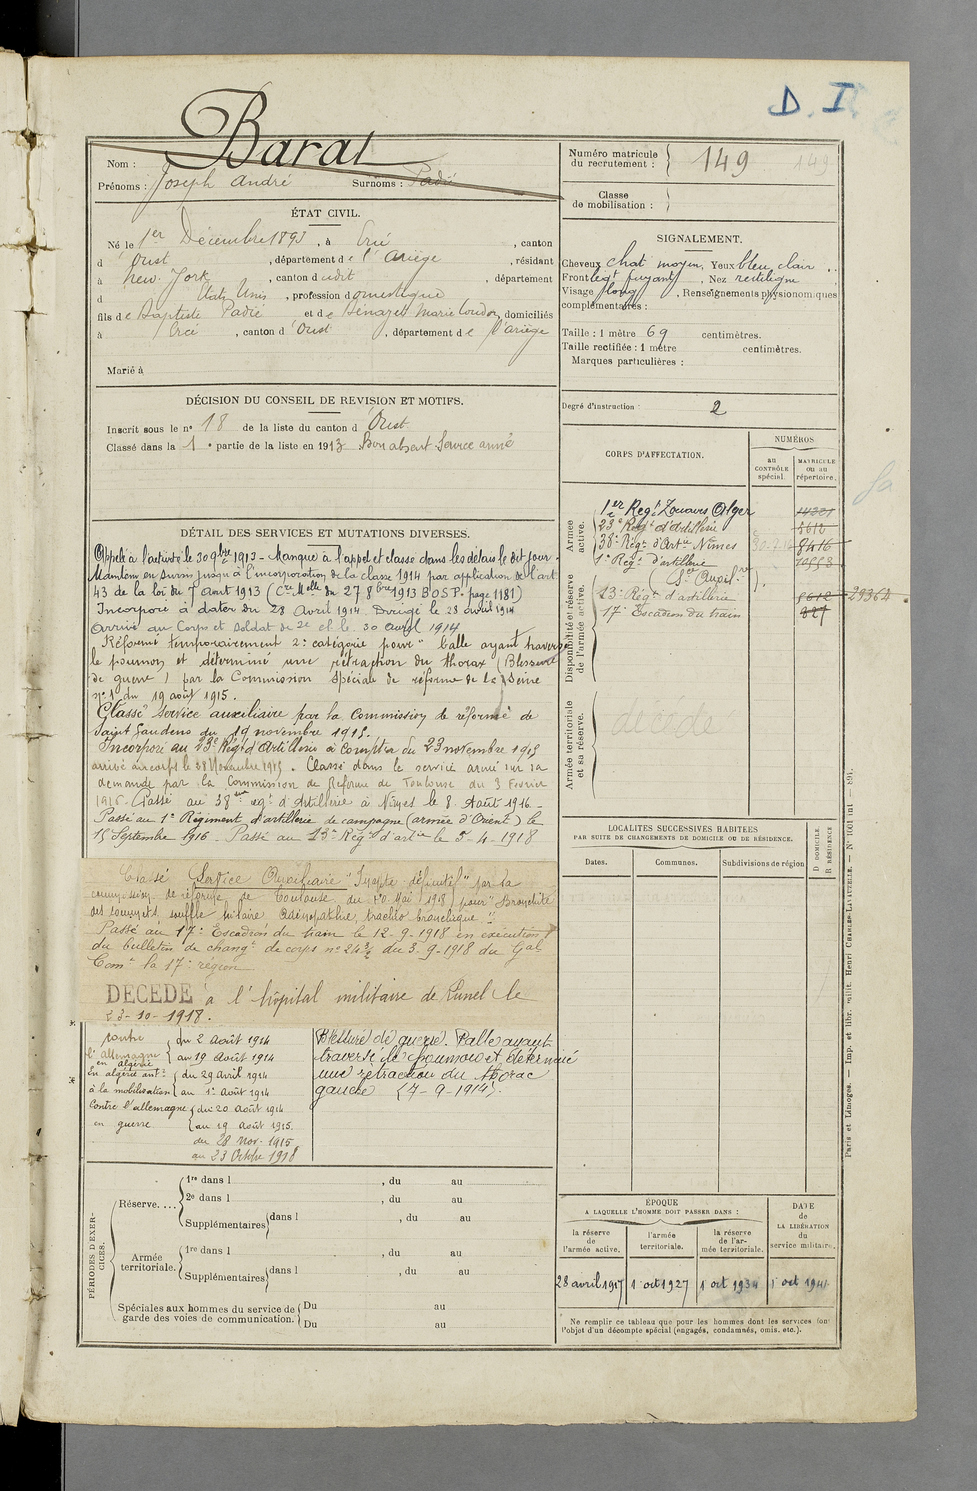 D. I.
Baral
Nom :
Prénoms : Joseph André Surnoms : Padié
Numéro matricule du recrutement : 149 149
Classe de mobilisation :
ÉTAT CIVIL.
Né le 1er Décembre 1893, à Ercé, canton
d'Oust, département de l'Ariège, résidant
à New-York, canton dudit, département
d États Unis, profession domestique
fils de Baptiste Padié et de Benazet Marie Loudon, domiciliés
à Ercé, canton d'Oust, département de l'Ariège
Marié à
SIGNALEMENT.
Cheveux chat moyen, Yeux bleu clair,
Front legt fuyant, Nez rectiligne
Visage long, Renseignements physionomiques
complémentaires :
Taille : 1 mètre 69 centimètres.
Taille rectifiée : 1 mètre centimètres.
Marques particulières :
Degré d'instruction : 2
DÉCISION DU CONSEIL DE REVISION ET MOTIFS.
Inscrit sous le no 18 de la liste du canton d'Oust
Classé dans la 1 e partie de la liste en 1913 Bon absent Service armé
DÉTAIL DES SERVICES ET MUTATIONS DIVERSES.
Appelé à l'activité le 30 9bre 1913 - Manque à l'appel et classé dans les délais le dit jour
Maintenu en sursis jusqu'à l'incorporation de la classe 1914 par application de l'art
43 de la loi du 7 août 1913 (Cre Melle du 27 8bre 1913 BOSP. page 1181)
Incorporé à dater du 28 Avril 1914. Dirigé le 28 avril 1914
Arrivé au Corps et Soldat de 2e cl. le 30 avril 1914
Réformé temporairement 2e catégorie pour "balle ayant traversé
le poumon et déterminé une rétraction du thorax (Blessure
de guerre) par la Commission spéciale de réforme de la Seine
no 1 du 19 août 1915.
Classé Service auxiliaire par la Commission de réforme de
Saint Gaudens du 19 novembre 1915.
Incorporé au 23e Régt d'Artillerie à compter du 23 novembre 1915
arrivé au corps le 28 Novembre 1915. Classé dans le service armé sur sa
demande par la Commission de Réforme de Toulouse du 3 Fevrier
1916. Passé au 38me regt d'Artillerie à Nimes le 8 Août 1916.
Passé au 1er Régiment d'artillerie de campagne (armée d'Orient) le
15 Septembre 1916 Passé au 13e Régt d'artie le 5-4-1918
Classé Service Auxiliaire "Inapte définitif" par la
commission de réforme de Toulouse du 10 Mai 1918 pour "Bronchite
des sommets, souffle hilaire, adénopathie, trachéo bronchique"
Passé au 17e Escadron du train le 12-9-1918 en exécution
du bulletin de changt de corps no 2432 du 3-9-1918 du Gal
Comt la 17e région
DECEDE à l'hôpital militaire de Lunel le
23-10-1918.
contre l'allemagne en algérie du 2 Août 1914 au 19 Août 1914
En algérie antt à la mobilisation du 29 Avril 1914 au 1er Août 1914
Contre l'allemagne en guerre du 20 Août 1914 au 19 Août 1915.
du 28 Nov. 1915
au 23 Octbre 1918
Blessure de guerre. Balle ayant
traversé le poumon et déterminé
une rétraction du thorax
gauche (7-9-1914).
CORPS D'AFFECTATION.
NUMÉROS
au CONTRÔLE spécial.
MATRICULE ou au répertoire.
Armée active.
1er Régt Zouaves Alger 14321
23e Régt d'Artillerie 5612
38e Régt d'Artie Nimes 8416
1er Régt d'artillerie 10553
(Ser Auxil.re)
Disponibilité et réserve de l'armée active.
13e Régt d'artillerie 5612 29364
17e Escadron du train 227
Armée territoriale et sa réserve.
décédé
LOCALITÉS SUCCESSIVES HABITÉES
PAR SUITE DE CHANGEMENTS DE DOMICILE OU DE RÉSIDENCE.
Dates. Communes. Subdivisions de région D DOMICILE. R RÉSIDENCE
PÉRIODES D'EXERCICES.
Réserve.... 1re dans l , du au
2e dans l , du au
Supplémentaires dans l , du au
Armée territoriale. 1re dans l , du au
Supplémentaires dans l , du au
Spéciales aux hommes du service de garde des voies de communication. Du au
Du au
ÉPOQUE
A LAQUELLE L'HOMME DOIT PASSER DANS :
la réserve de l'armée active. l'armée territoriale. la réserve de l'armée territoriale.
DATE de LA LIBÉRATION du service militaire.
28 avril 1917 1 oct 1927 1 oct 1934 1 oct 1941
Ne remplir ce tableau que pour les hommes dont les services font
l'objet d'un décompte spécial (engagés, condamnés, omis, etc.).
Paris et Limoges. — Imp. et libr. milit. Henri CHARLES-LAVAUZELLE. — No 1601 int